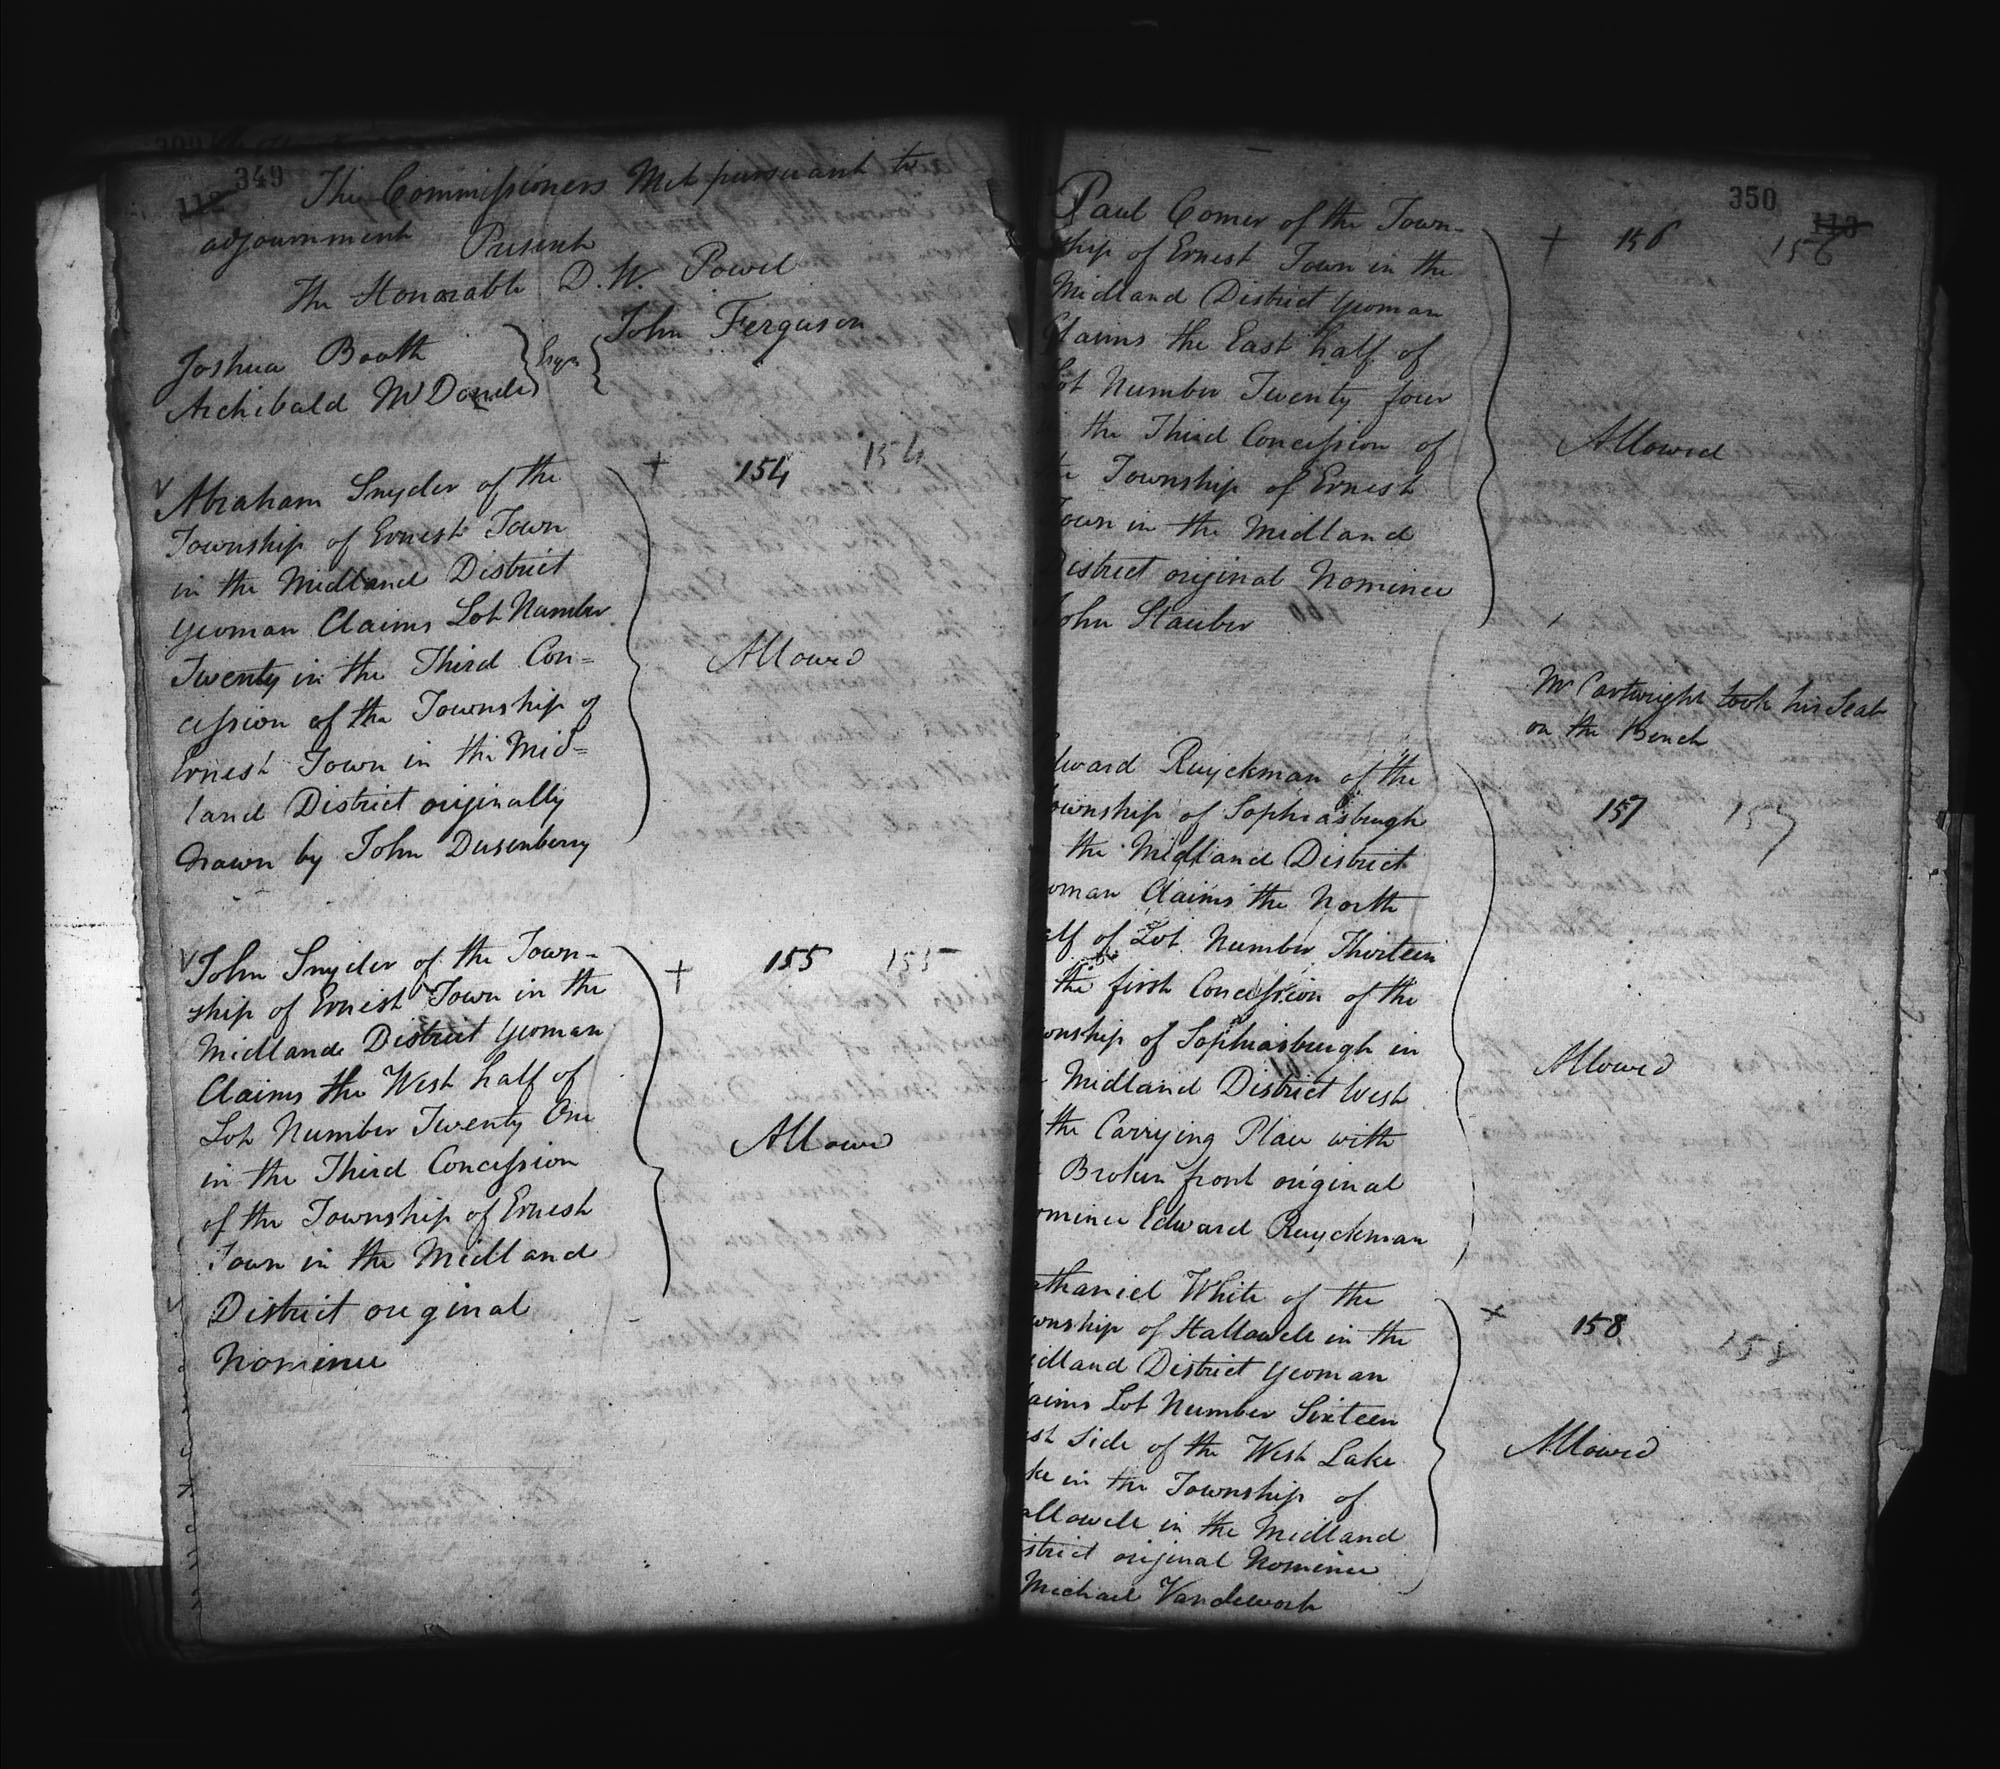 349
112
The Commissioners Met pursuant to
adjournment Present
The Honorable D. W. Powel
Joshua Booth
Archibald McDonele
Esqrs
John Ferguson
154 154
Abraham Snyder of the
Township of Ernest Town
in the Midland District
Yeoman Claims Lot Number
Twenty in the Third Con=
cession of the Township of
Ernest Town in the Mid=
land District originally
Drawn by John Dusenberry
Allowed
155 155
John Snyder of the Town-
ship of Ernest Town in the
Midland District Yeoman
Claims the West half of
Lot Number Twenty One
in the Third Concession
of the Township of Ernest
Town in the Midland
District original
Nominee
Allowed
350
113
156 156
Paul Comer of the Town-
ship of Ernest Town in the
Midland District Yeoman
Claims the East half of
Lot Number Twenty four
the Third Concession of
Township of Ernest
Town in the Midland
District original Nominee
John Stauber
Allowed
Mr Cartwright took his Seat
on the Bench
157 157
dward Ruyckman of the
ownship of Sophiasburgh
the Midland District
oman Claims the North
alf of Lot Number Thirteen
the first Concession of the
ownship of Sophiasburgh in
Midland District West
the Carrying Place with
Broken front original
ominee Edward Ruyckman
Allowed
158 158
athaniel White of the
wnship of Hallowell in the
idland District Yeoman
laims Lot Number Sixteen
st Side of the West Lake
ke in the Township of
allowell in the Midland
strict original Nominee
Michael Vandework
Allowed